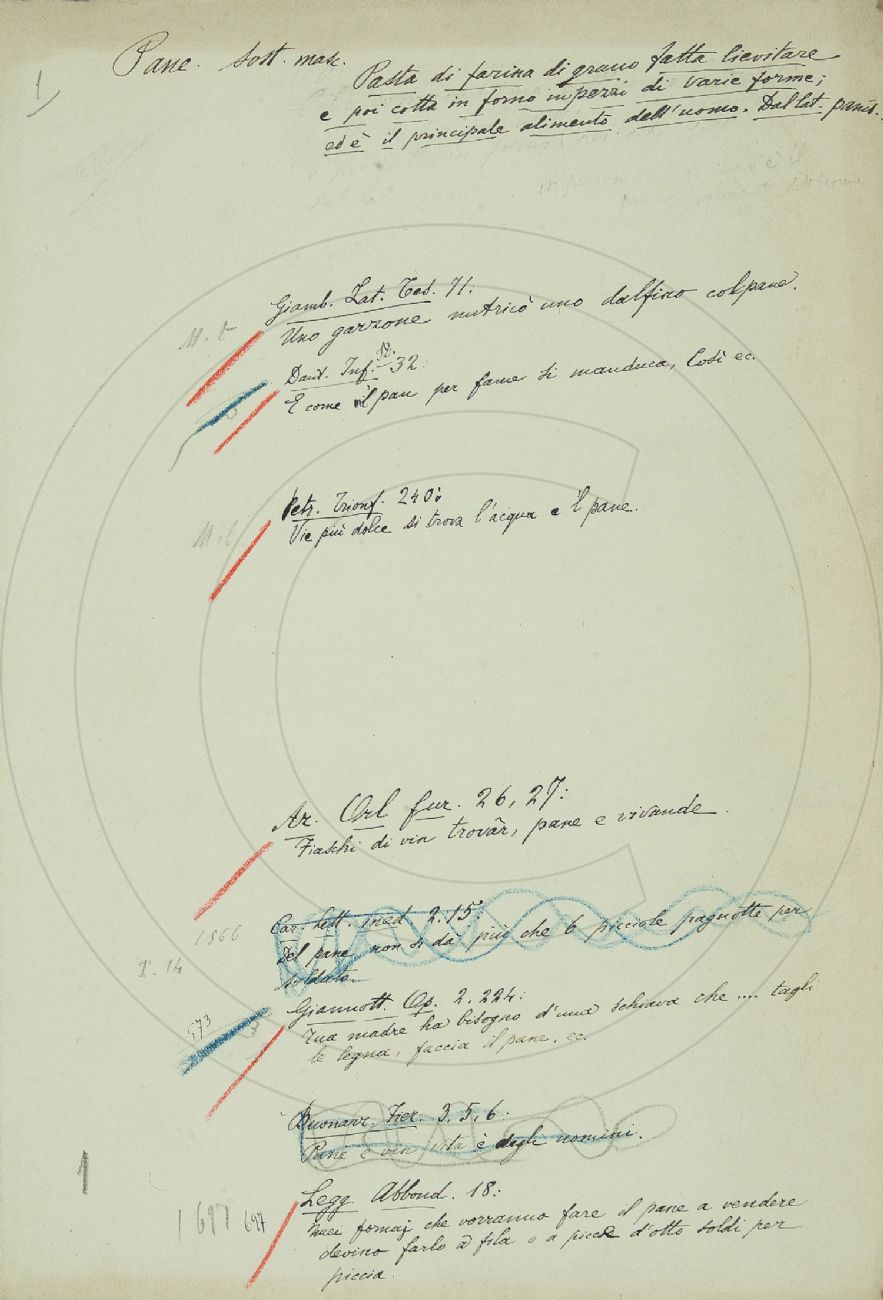 1
Pane. Sost. masc.
Pasta di farina di grano fatta lievitare
e poi cotta in forno in pezzi di varie forme;
ed è il principale alimento dell'uomo. Dal lat. panis.
Giamb. Lat. Tes. 71:
Uno garzone nutricò uno dalfino col pane.
M. t
Dant. Inf. 32:
E come il pan per fame si manduca, Così ec.
Petr. Trionf. 240:
Vie più dolce si trova l'acqua e 'l pane.
M. t
Ar. Orl fur. 26, 27:
Fiaschi di vin trovâr, pane e vivande
Car. Lett. ined. 2. 15:
Del pane non si dà più che 6 picciole pagnotte per
soldato.
1566
T. 14
Giannott. Op. 2. 224:
Tua madre ha bisogno d'una schiava che .... tagli
le legna, faccia il pane, ec.
573
Buonarr. Fier. 3. 5. 6:
Pane e vin vita è degli uomini.
1
Legg Abbond. 18:
fornaj che vorranno fare il pane a vendere
devino farlo a fila o a piccie d'otto soldi per
piccia.
1697 697